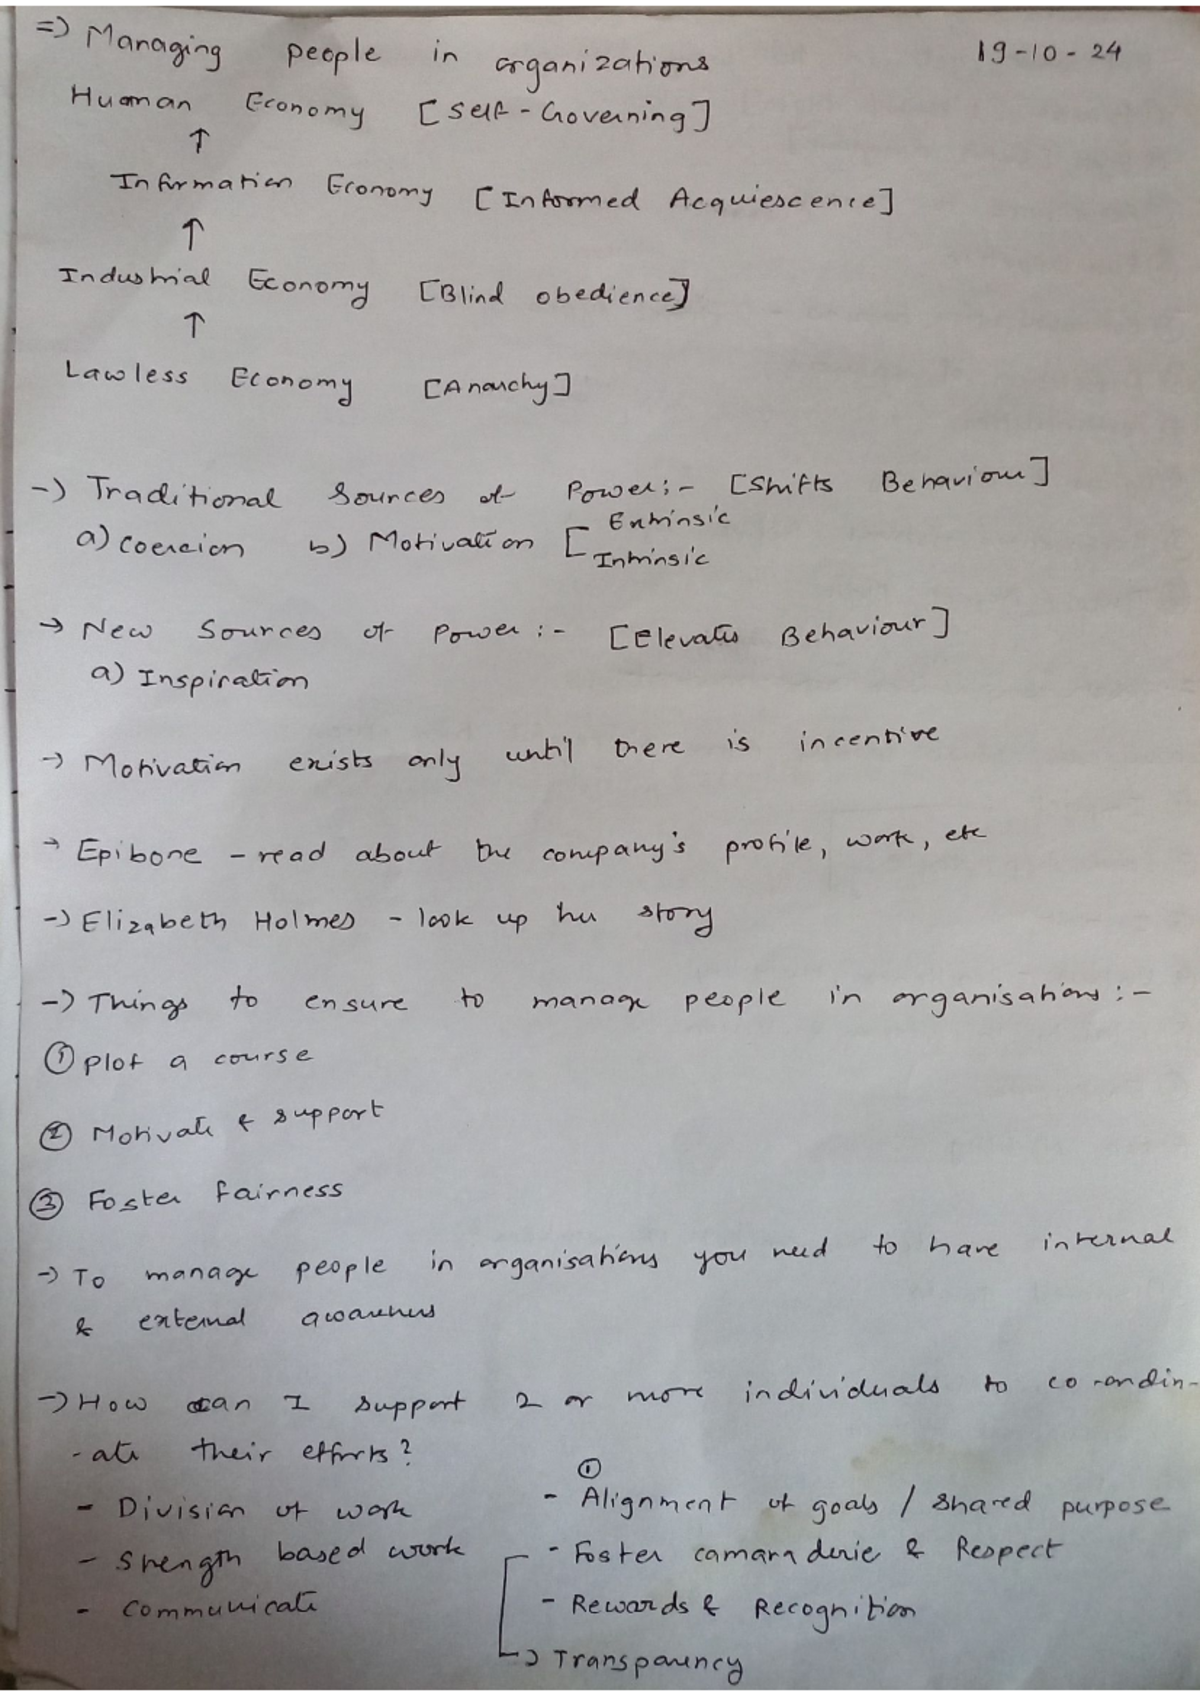 => Managing people in organizations 19-10-24
Human Economy [Self-Governing]
↑
Information Economy [Informed Acquiescence]
↑
Industrial Economy [Blind obedience]
↑
Lawless Economy [Anarchy]
-> Traditional Sources of Power:- [Shifts Behaviour]
a) Coercion b) Motivation [ Extrinsic
Intrinsic
-> New Sources of Power:- [Elevates Behaviour]
a) Inspiration
-> Motivation exists only until there is incentive
-> Epibone - read about the company's profile, work, etc
-> Elizabeth Holmes - look up her story
-> Things to ensure to manage people in organisations:-
① Plot a course
② Motivate & support
③ Foster fairness
-> To manage people in organisations you need to have internal
& external awareness
-> How can I support 2 or more individuals to co-ordin-
-ate their efforts?
- Division of work
- Strength based work
- Communicate
①
- Alignment of goals / shared purpose
- Foster camaraderie & Respect
- Rewards & Recognition
-> Transparency